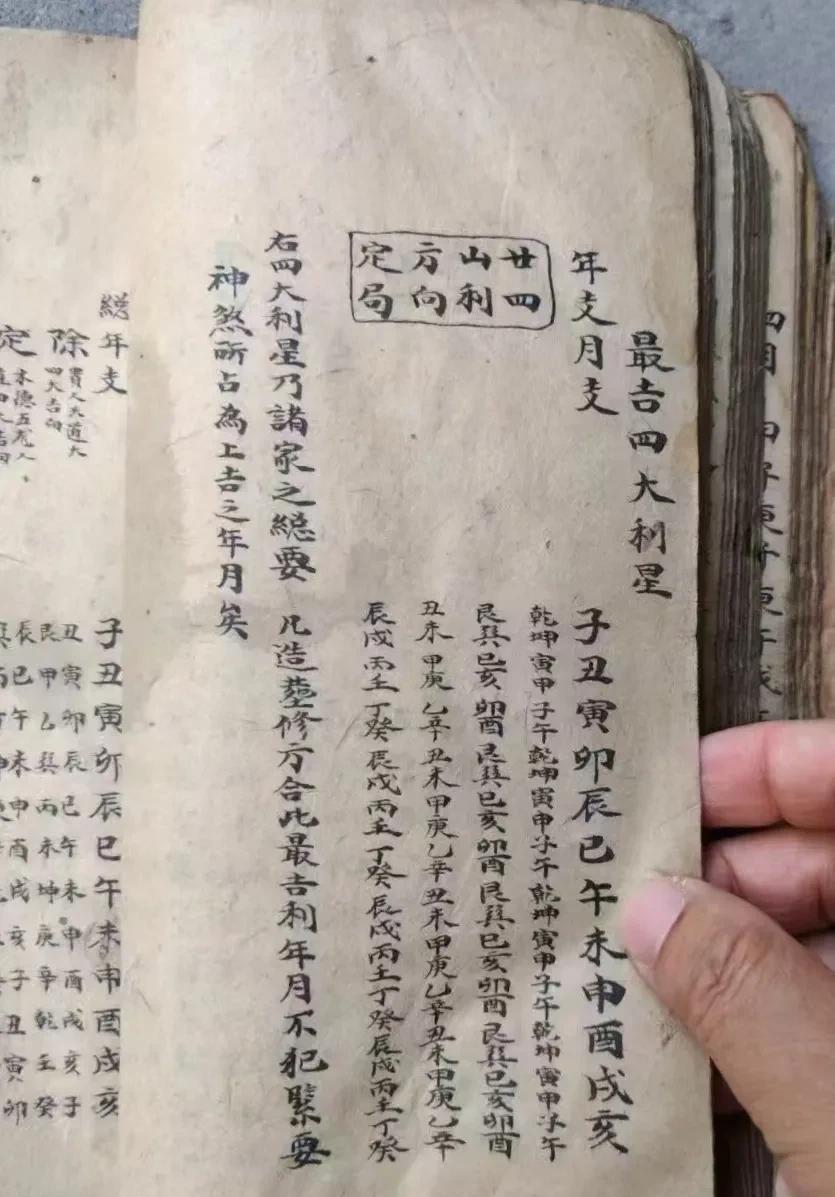 四月
最吉四大利星
年支月支 子丑寅卯辰巳午未申酉戌亥
廿四
山利
方向
定局
乾坤寅甲子午乾坤寅甲子午乾坤寅甲子午乾坤寅甲子午
艮巽巳亥卯酉艮巽巳亥卯酉艮巽巳亥卯酉艮巽巳亥卯酉
丑未甲庚乙辛丑未甲庚乙辛丑未甲庚乙辛丑未甲庚乙辛
辰戌丙壬丁癸辰戌丙壬丁癸辰戌丙壬丁癸辰戌丙壬丁癸
右四大利星乃諸家之緫要 凡造塟修方合此最吉利年月不犯緊要
神煞所占為上吉之年月矣
緫年支 子丑寅卯辰巳午未申酉戌亥
除 貴人天道大 丑寅卯辰巳午未申酉戌亥子
四大吉向 艮甲乙巽丙未坤庚辛乾壬癸
定 辰巳午未申酉戌亥子丑寅卯